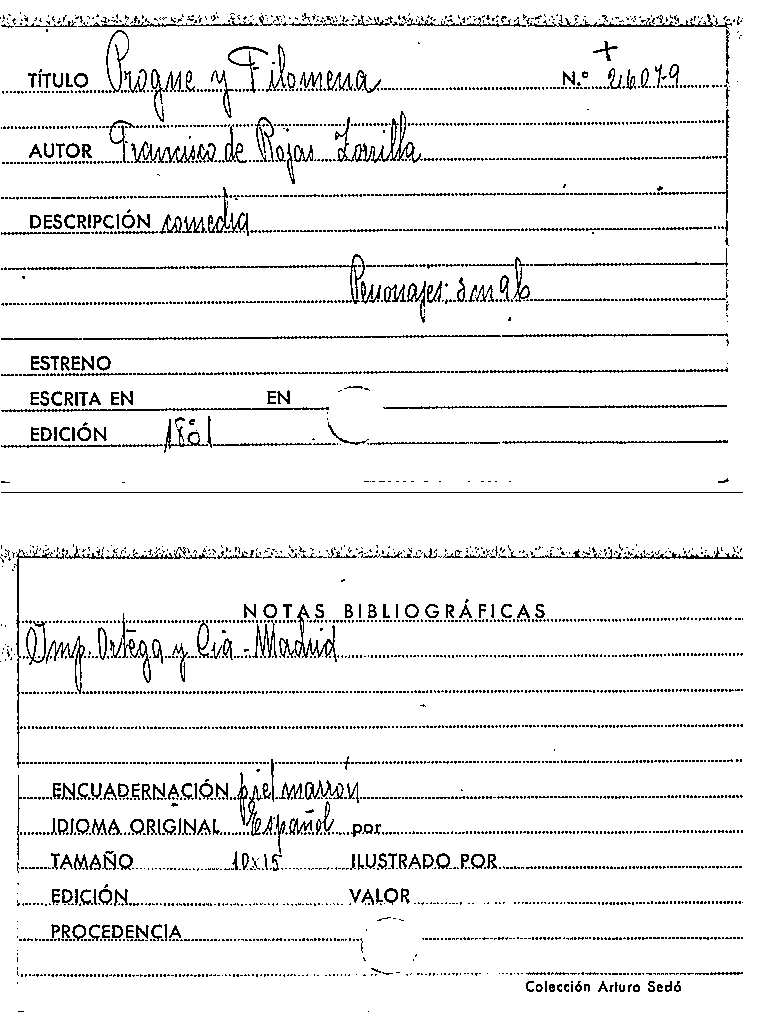 +
TÍTULO Progne y Filomena N.º 26079
AUTOR Francisco de Rojas Zorrilla
DESCRIPCIÓN comedia
Personajes: 3m 9h
ESTRENO
ESCRITA EN EN
EDICIÓN
NOTAS BIBLIOGRÁFICAS
Imp. Ortega y Cia - Madrid
ENCUADERNACIÓN piel marrón
IDIOMA ORIGINAL Español por
TAMAÑO 10x15 ILUSTRADO POR
EDICIÓN VALOR
PROCEDENCIA
Colección Arturo Sedó